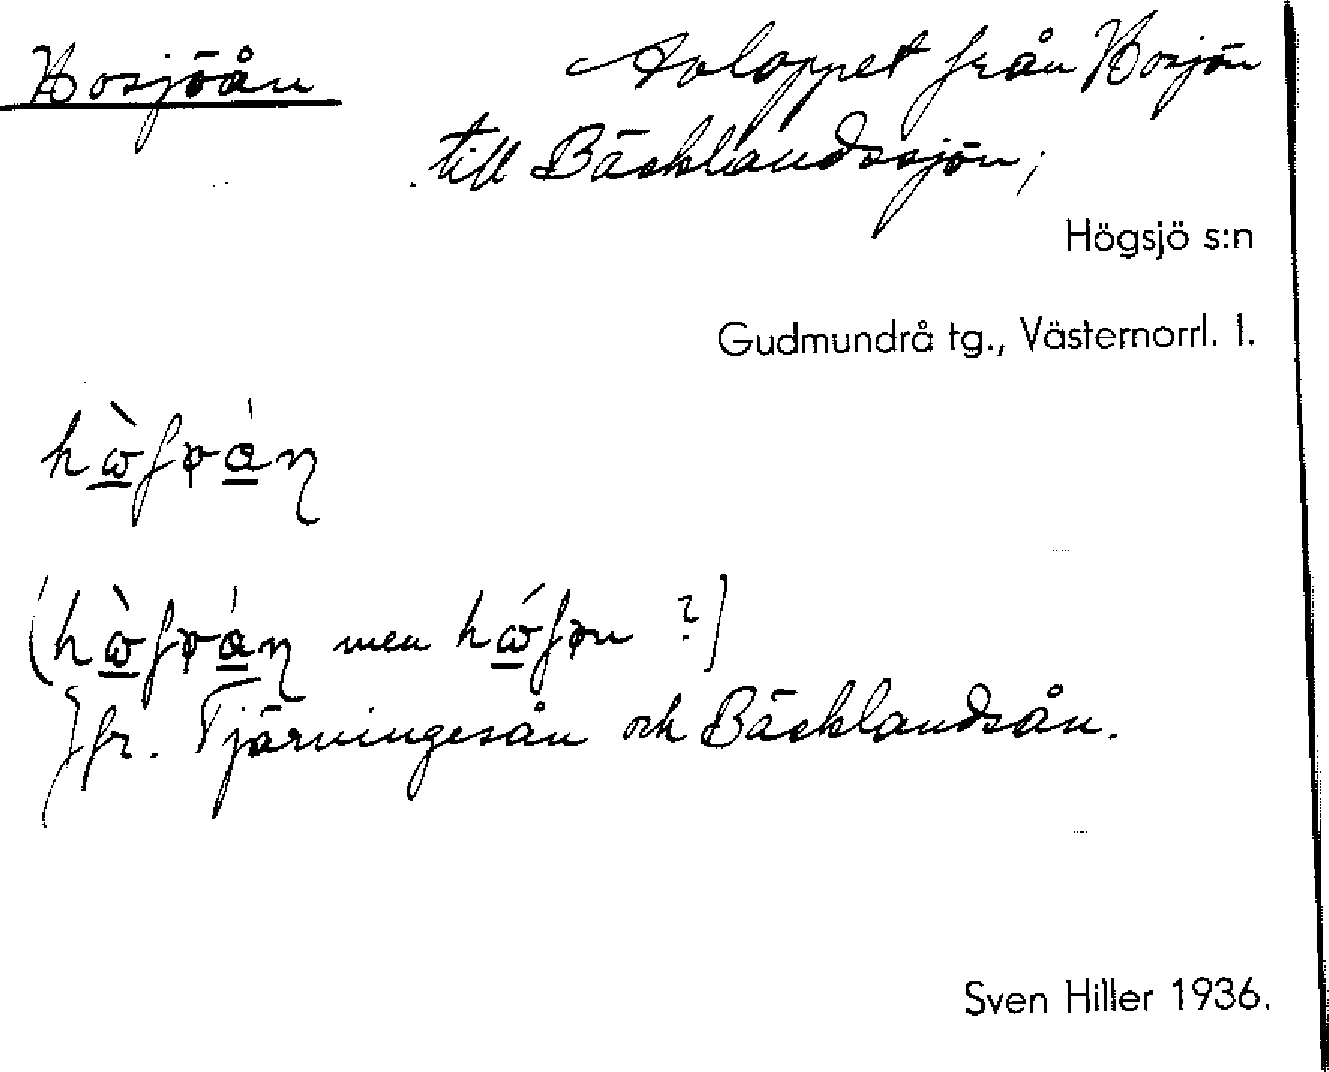 Hosjöån
Avloppet från Hosjön
till Bäcklandssjön;
Högsjö s:n
Gudmundrå tg., Västernorrl. l.
men
?)
Jfr. Tjärningesån och Bäcklandsån.
Sven Hiller 1936.